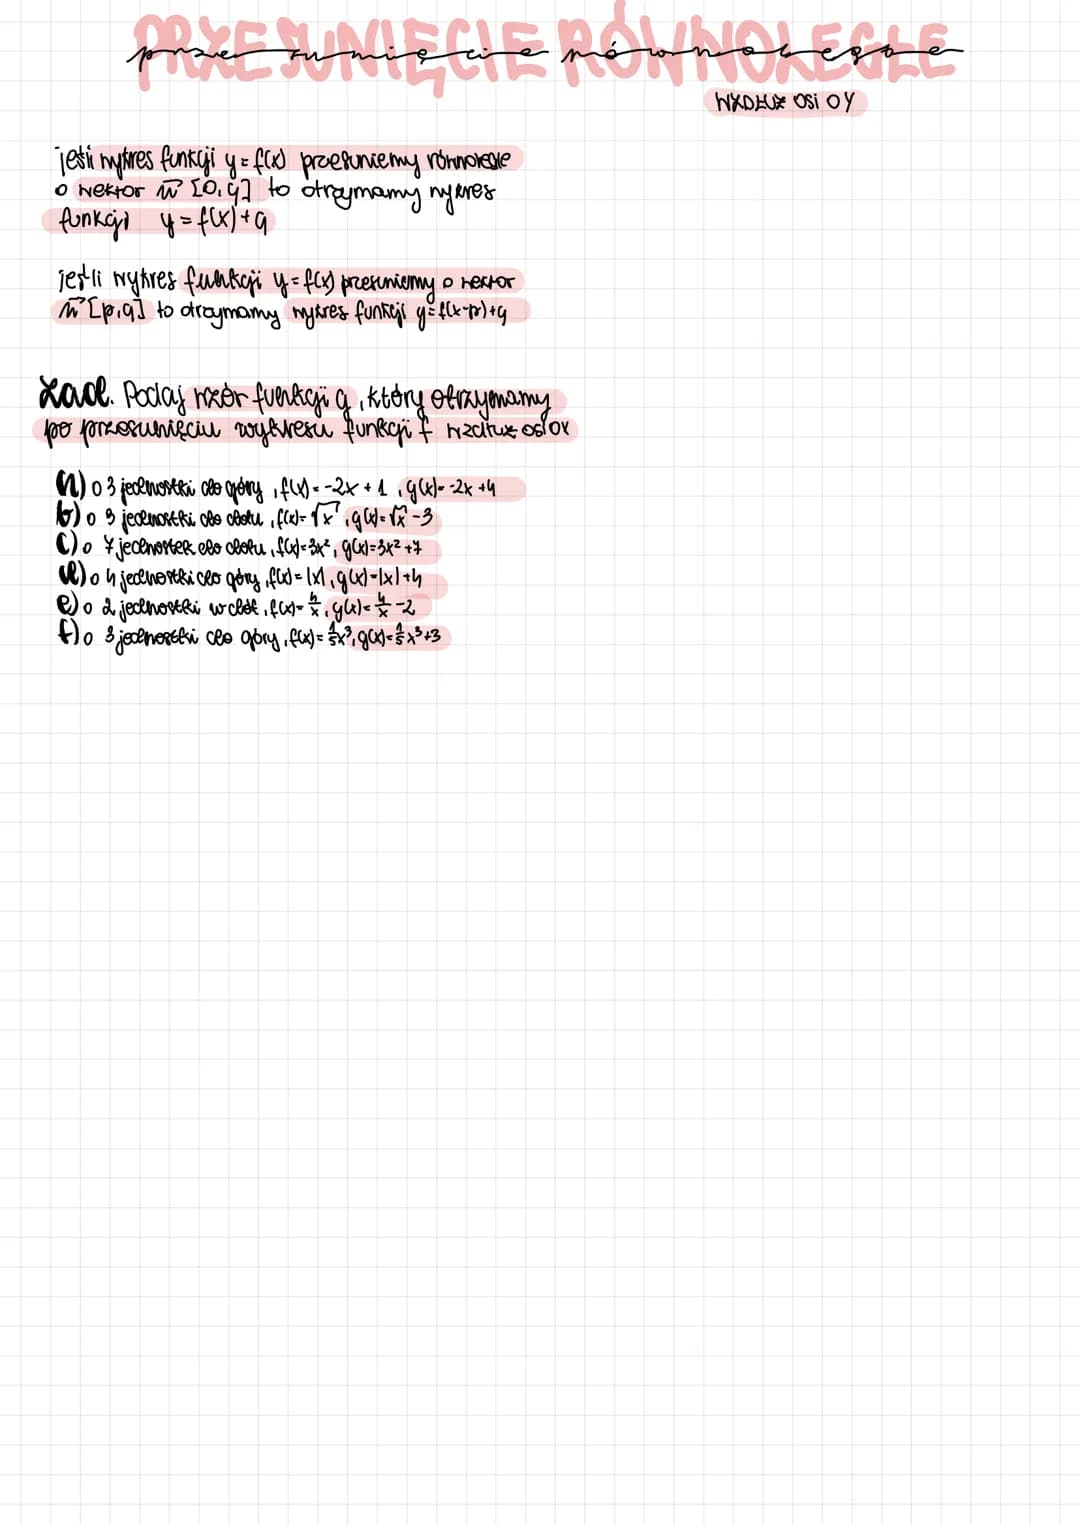 PRZESUNIĘCIE RÓWNOLEGŁE
przesunięcie równoległe
WZDŁUŻ OSI OY
jeśli wykres funkcji y = f(x) przesuniemy równolegle
o wektor w⃗ [0,q] to otrzymamy wykres
funkcji y = f(x)+q
jeśli wykres funkcji y = f(x) przesuniemy o wektor
w⃗ [p,q] to otrzymamy wykres funkcji y = f(x-p)+q
Zad. Podaj wzór funkcji g, który otrzymamy
po przesunięciu wykresu funkcji f wzdłuż osi OY
a) o 3 jednostki do góry, f(x) = -2x + 1, g(x) = -2x +4
b) o 3 jednostki do dołu, f(x) = √x, g(x) = √x -3
c) o 7 jednostek do dołu, f(x) = 3x², g(x) = 3x² +7
d) o 4 jednostki do góry, f(x) = |x|, g(x) = |x| +4
e) o 2 jednostki w dół, f(x) = 4/x, g(x) = 4/x -2
f) o 3 jednostki do góry, f(x) = 1/5x³, g(x) = 1/5x³+3